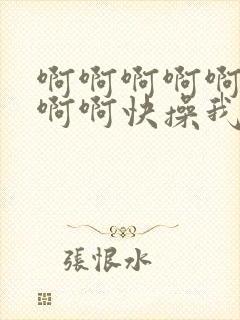 啊啊啊啊啊
啊啊快操我
張恨水